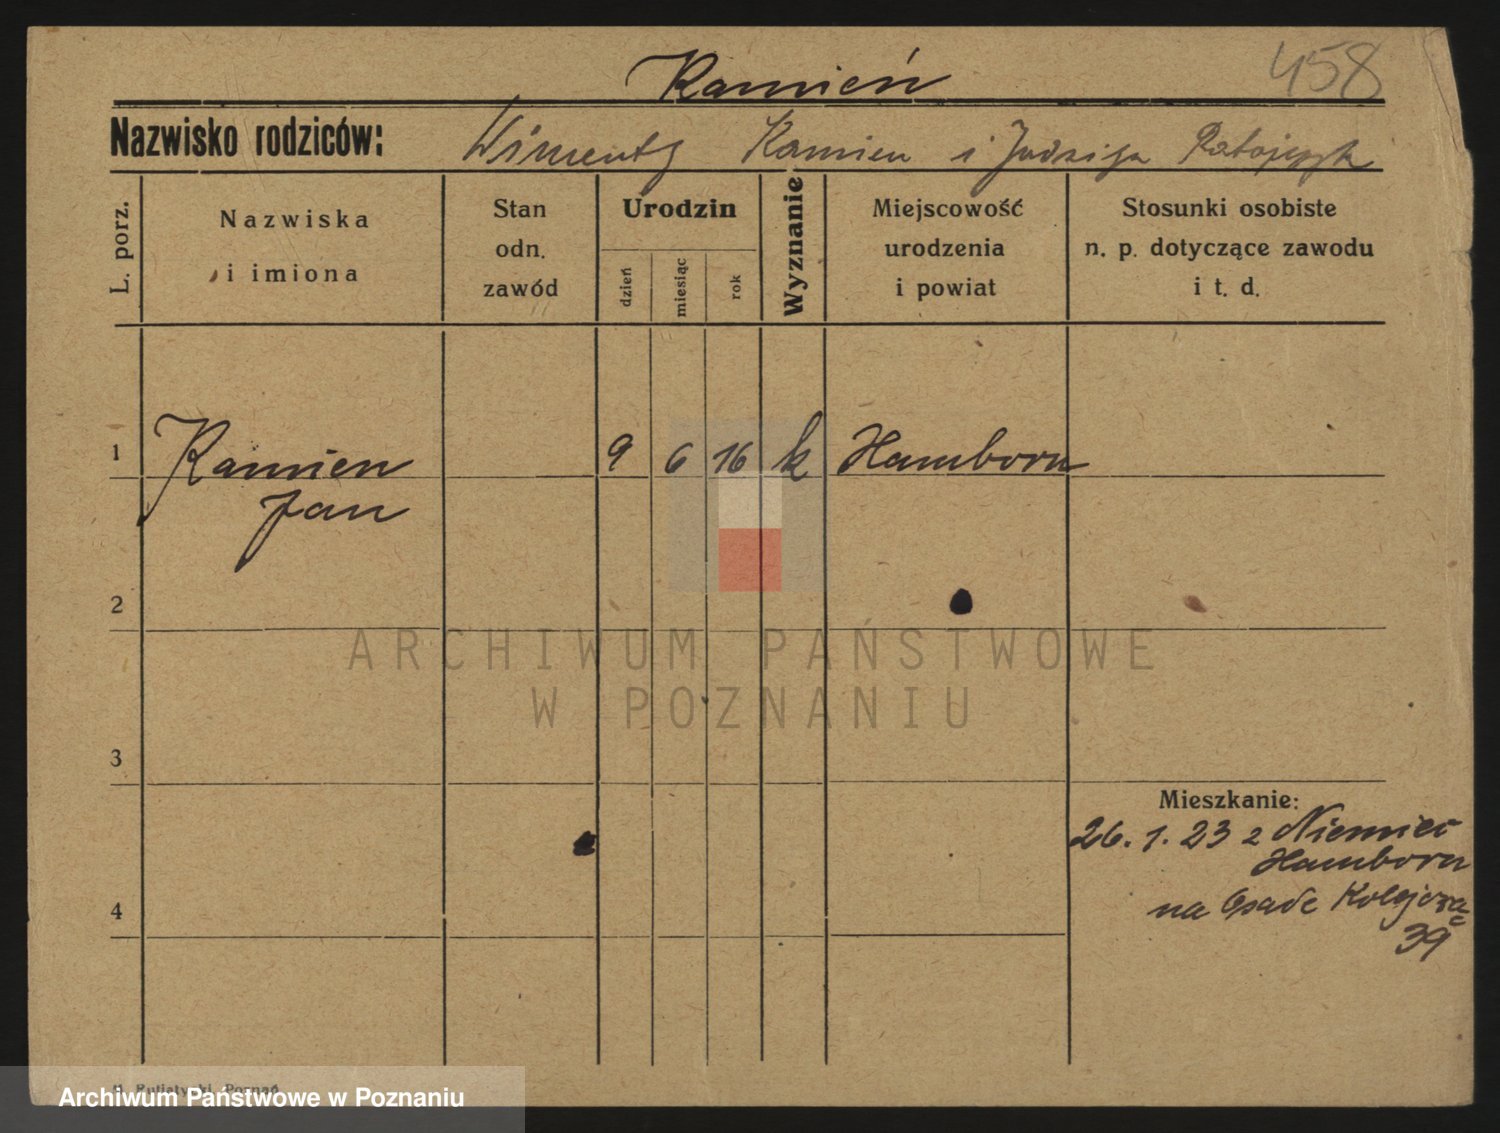 458
Kamień
Nazwisko rodziców: Wincenty Kamien i Jadziga Ratajczyk
L. porz.
Nazwiska
i imiona
Stan
odn.
zawód
Urodzin
dzień
miesiąc
rok
Wyznanie
Miejscowość
urodzenia
i powiat
Stosunki osobiste
n. p. dotyczące zawodu
i t. d.
1 Kamien 9 6 16 k Hamborn
Jan
2
ARCHIWUM PAŃSTWOWE
W POZNANIU
3
Mieszkanie:
26. 1. 23 z Niemiec
Hamborn
4
na Osade
39
Poznań
Archiwum Państwowe w Poznaniu